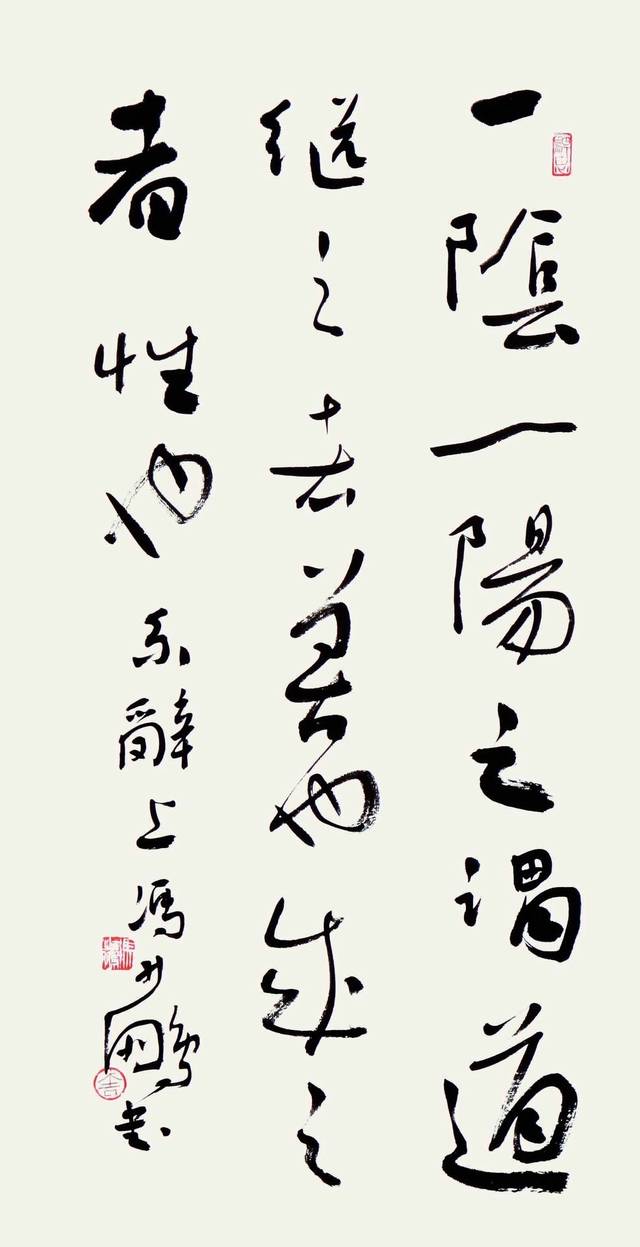 一陰一陽之謂道
继之者善也成之
者性也系辭上馮鵬書